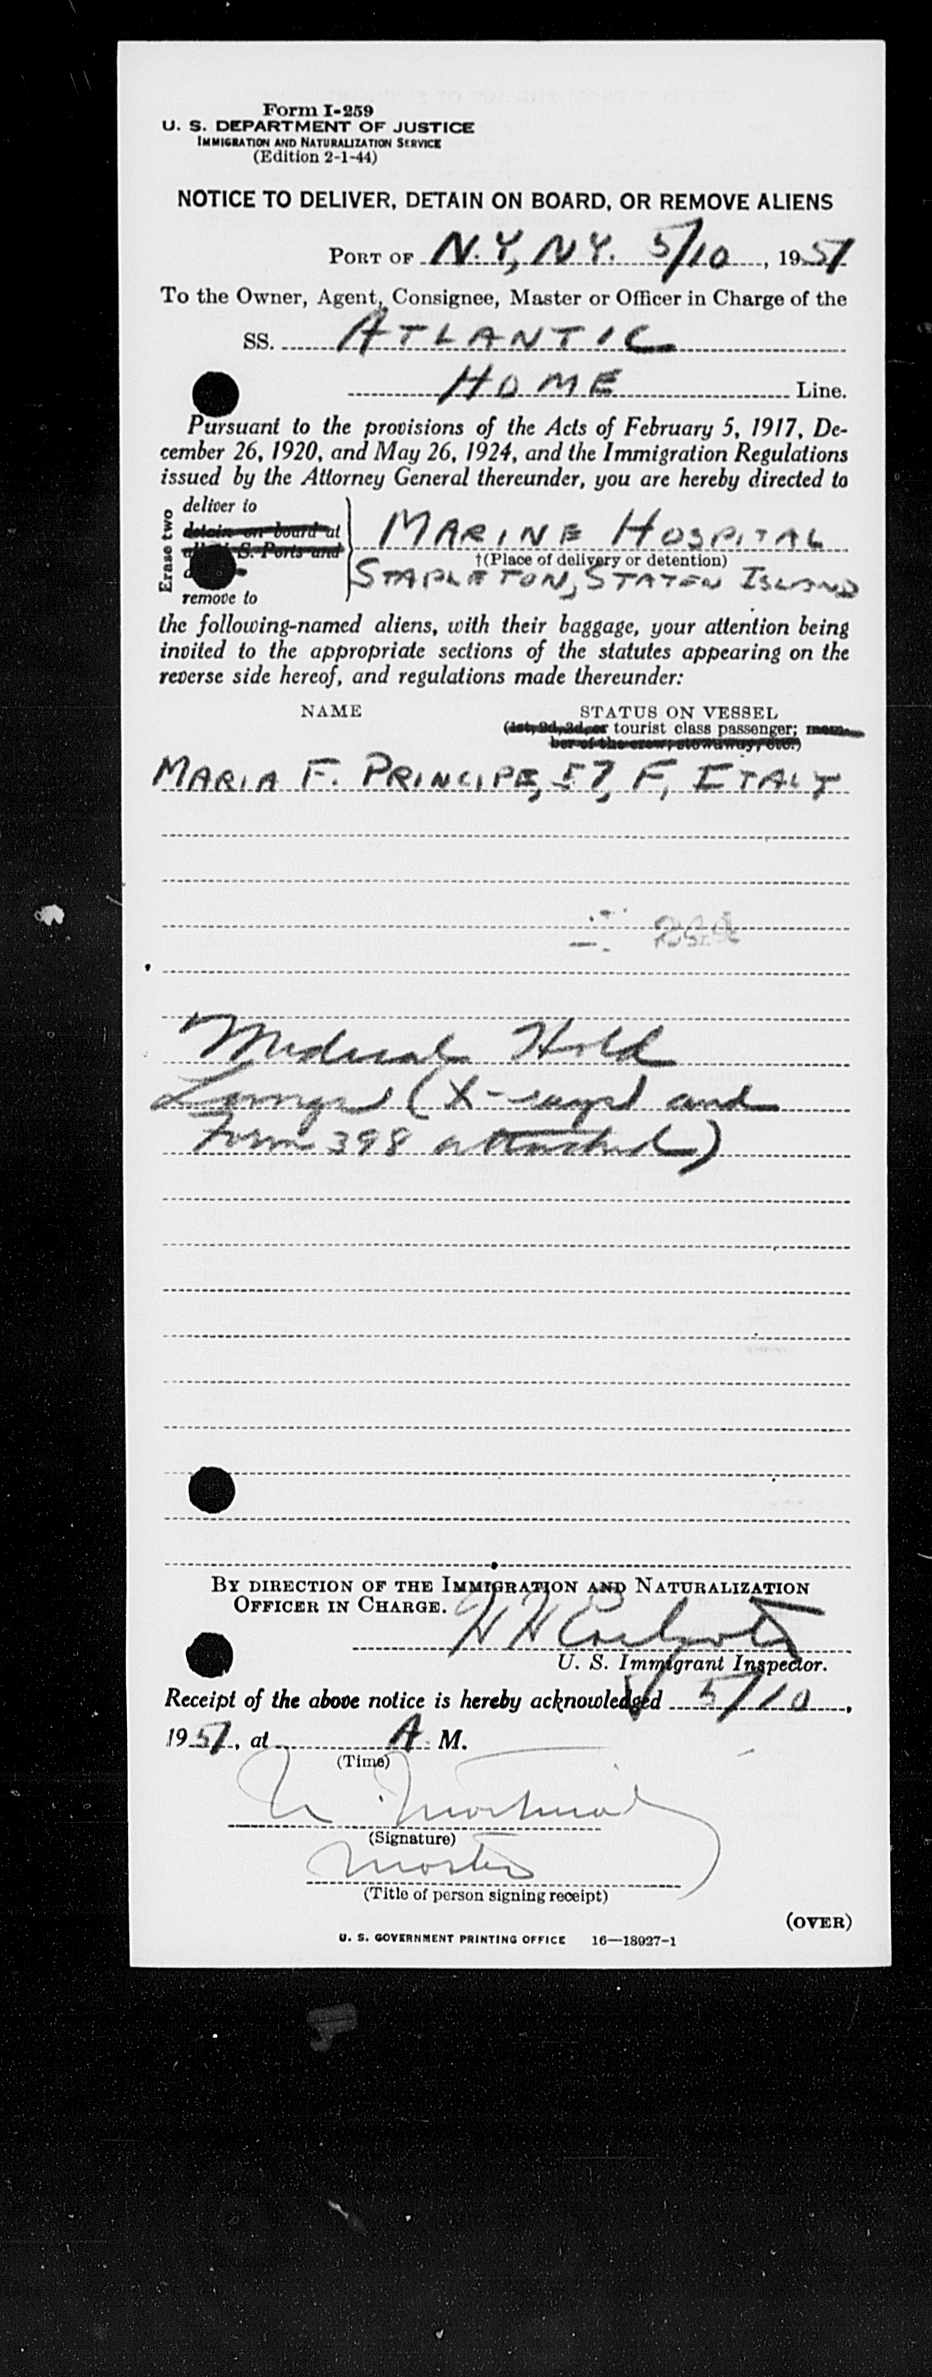 Form I-259
U. S. DEPARTMENT OF JUSTICE
IMMIGRATION AND NATURALIZATION SERVICE
(Edition 2-1-44)
NOTICE TO DELIVER, DETAIN ON BOARD, OR REMOVE ALIENS
PORT OF N.Y., N.Y. 5/10, 1951
To the Owner, Agent, Consignee, Master or Officer in Charge of the
SS. ATLANTIC
HOME Line.
Pursuant to the provisions of the Acts of February 5, 1917, De-
cember 26, 1920, and May 26, 1924, and the Immigration Regulations
issued by the Attorney General thereunder, you are hereby directed to
Erase two
deliver to
detain on board at
S. Ports and
remove to
MARINE HOSPITAL
†(Place of delivery or detention)
STAPLETON, STATEN ISLAND
the following-named aliens, with their baggage, your attention being
invited to the appropriate sections of the statutes appearing on the
reverse side hereof, and regulations made thereunder:
NAME STATUS ON VESSEL
(1st, 2d, 3d, or tourist class passenger; mem-
ber of the crew; stowaway, etc.)
MARIA F. PRINCIPE, 57, F, ITALY
Medical Hold
Lungs (X-rays and
Form 398 attached)
BY DIRECTION OF THE IMMIGRATION AND NATURALIZATION
OFFICER IN CHARGE.
U. S. Immigrant Inspector.
Receipt of the above notice is hereby acknowledged 5/10,
1951, at A M.
(Time)
(Signature)
Master
(Title of person signing receipt)
(OVER)
U. S. GOVERNMENT PRINTING OFFICE 16—18027-1